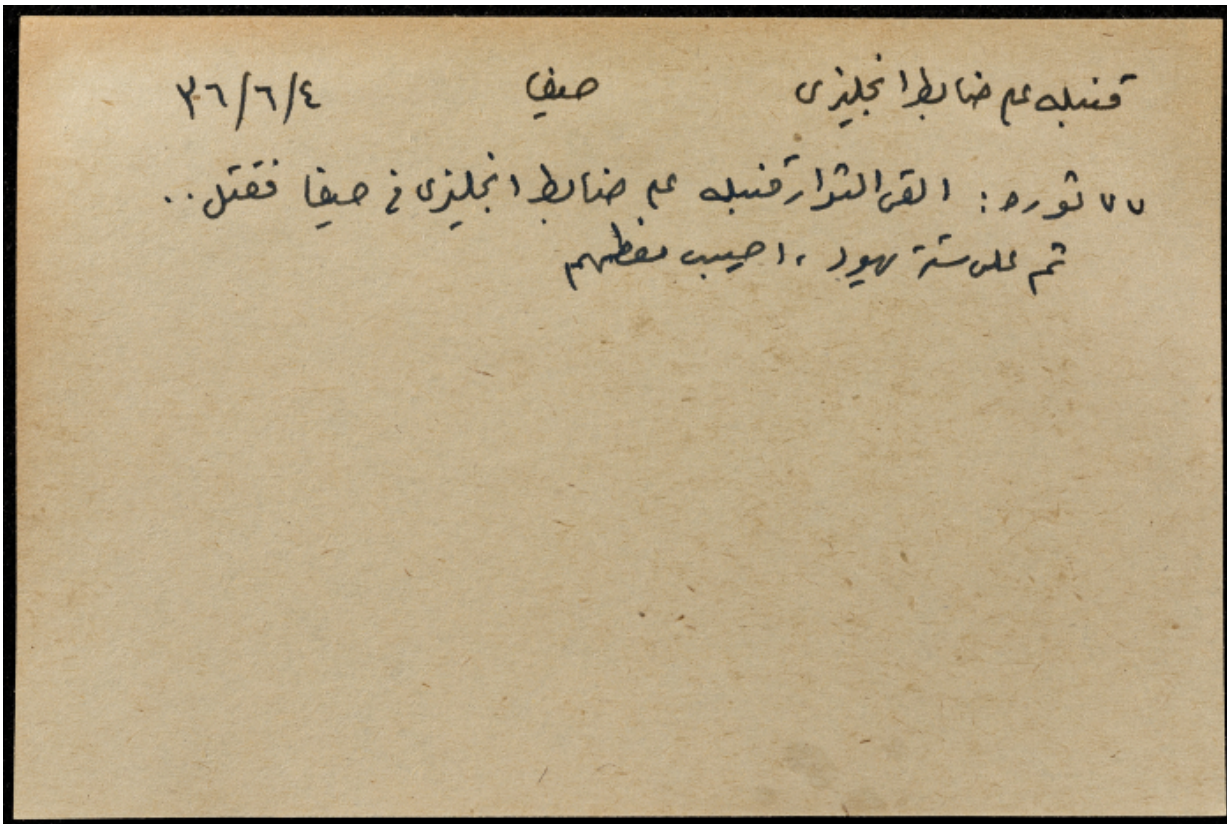 قنبله على ضابط انجليزى حيفا ٣٦/٦/٤
٧٧ ثوره : القى الثوار قنبله على ضابط انجليزى في حيفا فقتل ..
ثم على ستة يهود ، اصيب معظمهم